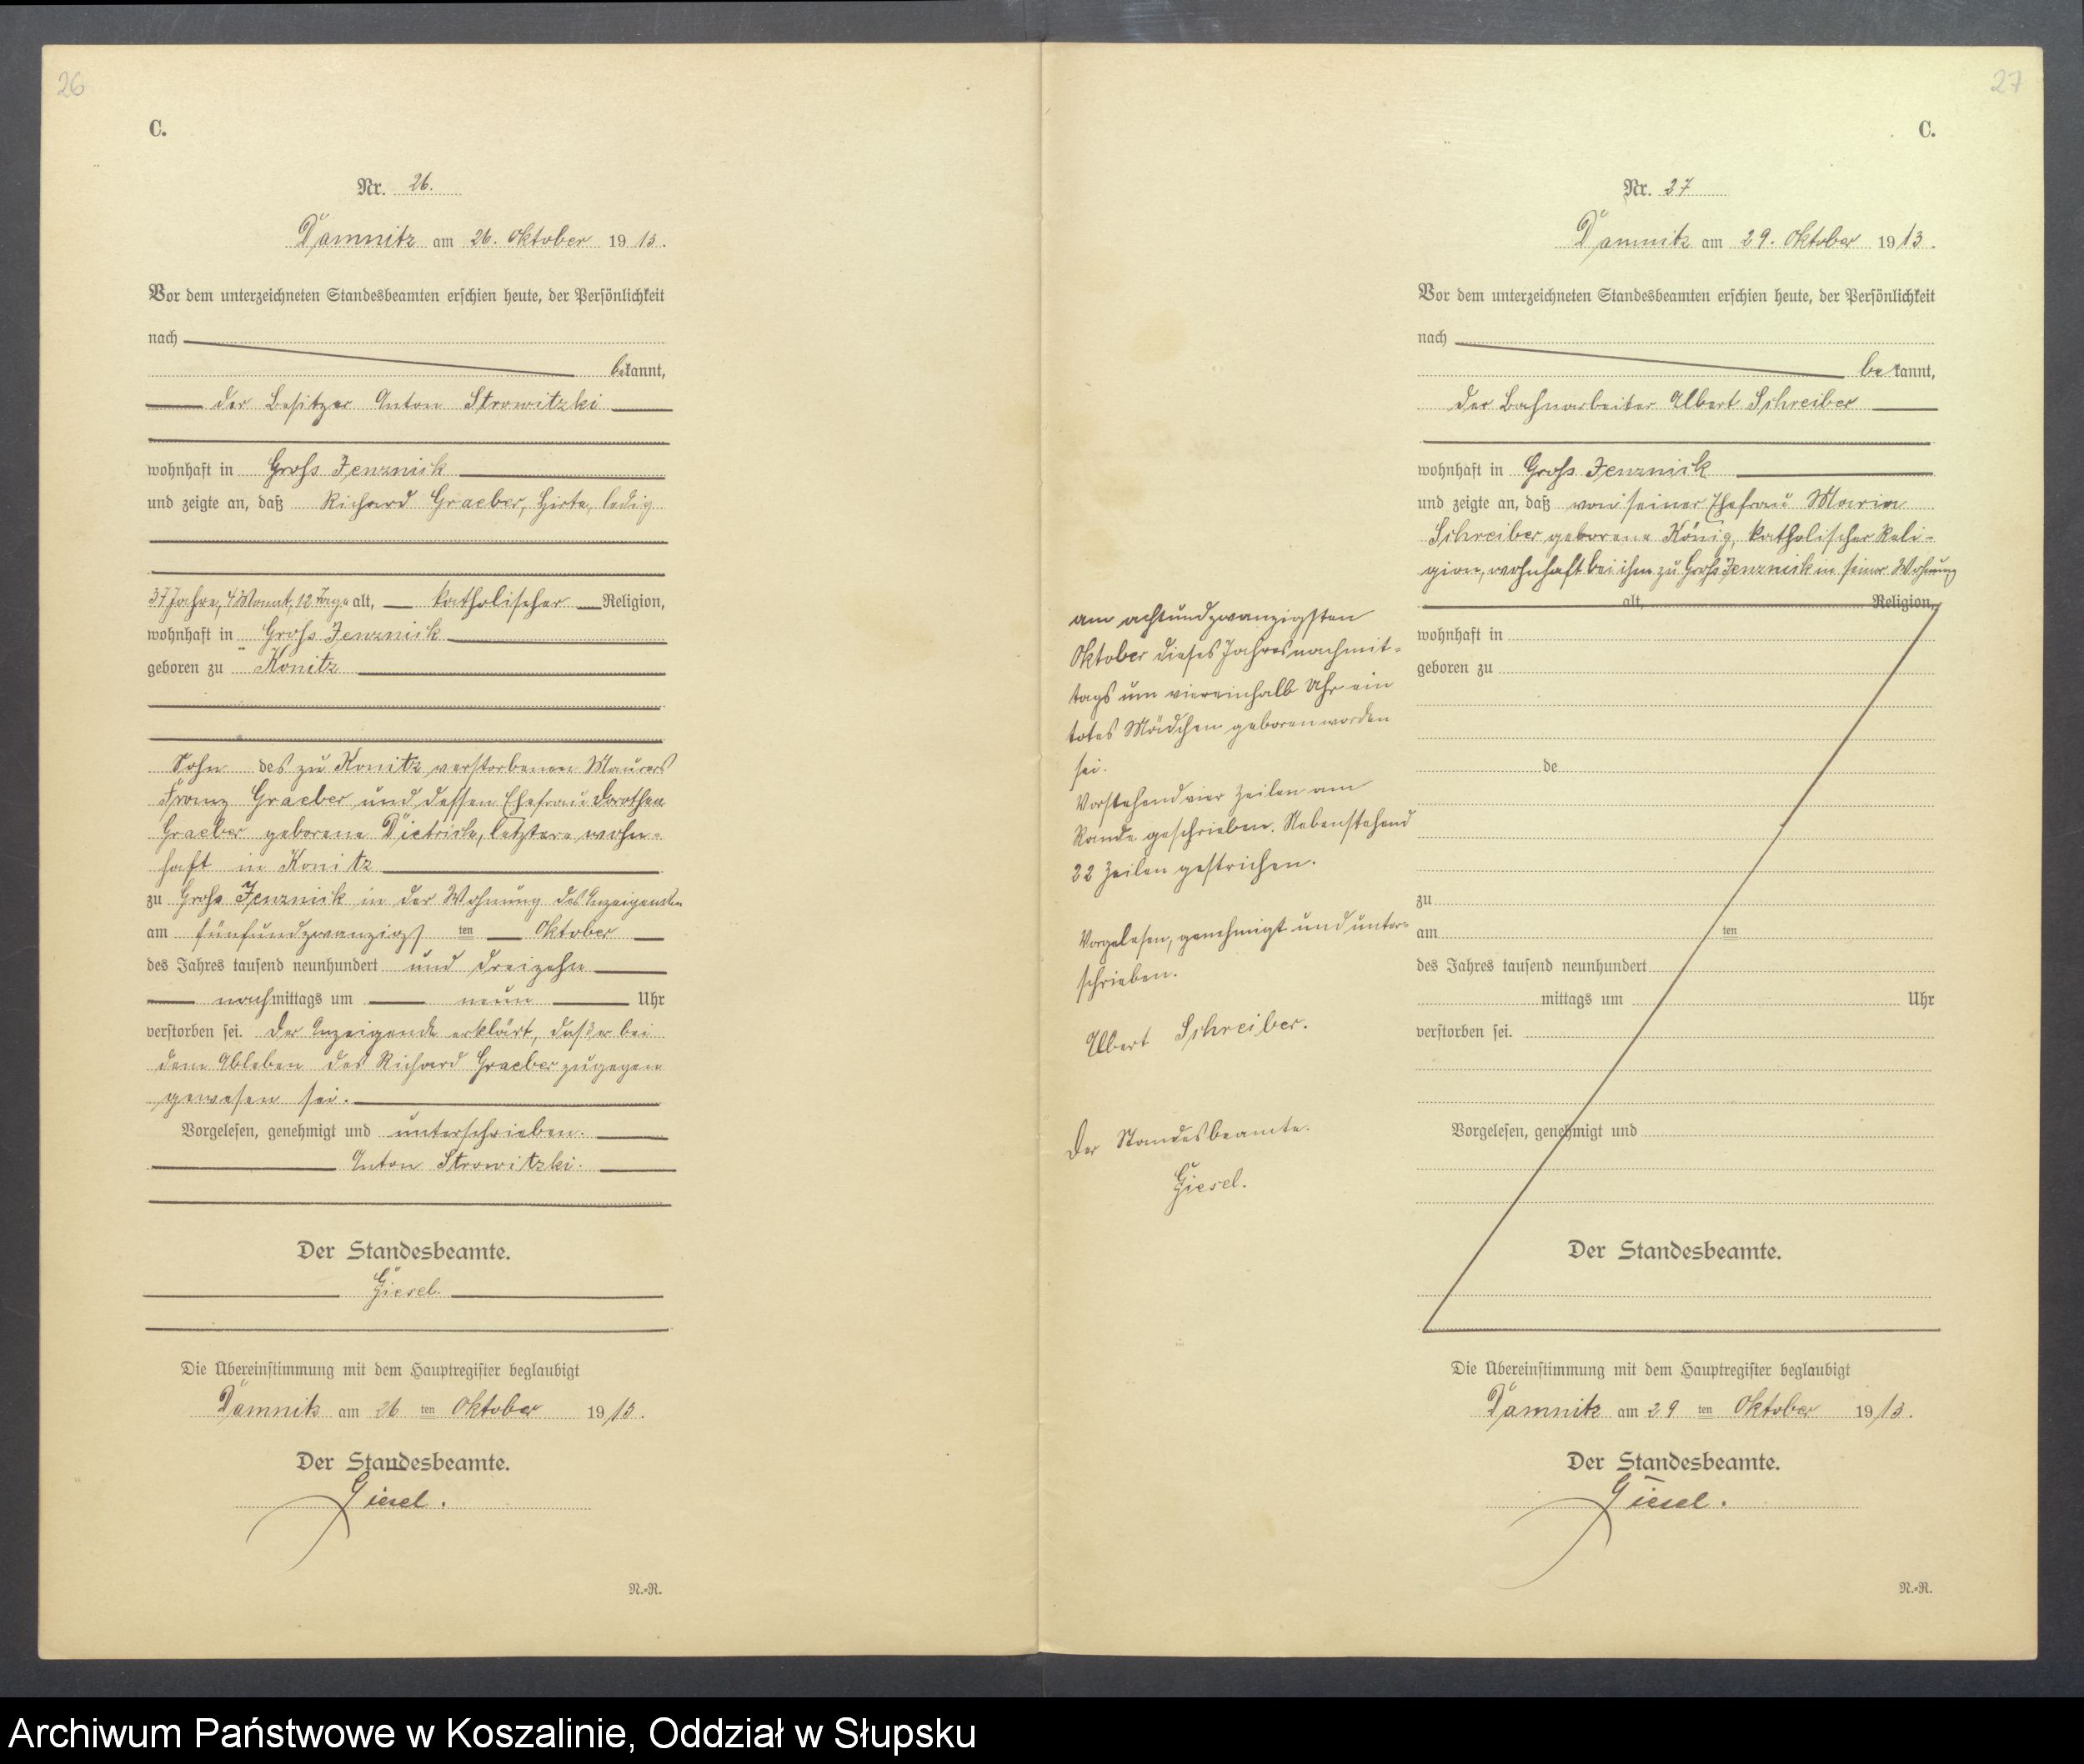 26
C.
Nr. 26.
Damnitz am 26. Oktober 1913.
Vor dem unterzeichneten Standesbeamten erschien heute, der Persönlichkeit
nach
bekannt,
der Besitzer Anton Strowitzki
wohnhaft in Groß Jenznick
und zeigte an, daß Richard Graeber, Hirte, ledig
37 Jahre, 4 Monat, 12 Tage alt, katholischer Religion,
wohnhaft in Groß Jenznick
geboren zu Konitz
Sohn des zu Konitz verstorbenen Maurers
Franz Graeber und dessen Ehefrau Dorothea
Graeber geborene Dietrich, letztere wohn-
haft in Konitz
zu Groß Jenznick in der Wohnung des Anzeigenden
am fünfundzwanzigsten Oktober
des Jahres tausend neunhundert und dreizehn
nachmittags um neun Uhr
verstorben sei. Der Anzeigende erklärt, daß er bei
dem Ableben des Richard Graeber zugegen
gewesen sei.
Vorgelesen, genehmigt und unterschrieben.
Anton Strowitzki.
Der Standesbeamte.
Giesel.
Die Übereinstimmung mit dem Hauptregister beglaubigt
Damnitz am 26 ten Oktober 1913.
Der Standesbeamte.
Giesel.
N.-R.
27
C.
Nr. 27
Damnitz am 29. Oktober 1913.
Vor dem unterzeichneten Standesbeamten erschien heute, der Persönlichkeit
nach
bekannt,
der Bahnarbeiter Albert Schreiber
wohnhaft in Groß Jenznick
und zeigte an, daß von seiner Ehefrau Maria
Schreiber geborene König, katholischer Reli-
gion, wohnhaft bei ihm zu Groß Jenznick in seiner Wohnung
am achtundzwanzigsten
Oktober dieses Jahres nachmit-
tags um viereinhalb Uhr ein
totes Mädchen geboren worden
sei.
Vorstehend vier Zeilen am
Rande geschrieben. Nebenstehend
22 Zeilen gestrichen.
Vorgelesen, genehmigt und unter-
schrieben.
Albert Schreiber.
Der Standesbeamte.
Giesel.
alt, Religion,
wohnhaft in
geboren zu
de
zu
am ten
des Jahres tausend neunhundert
mittags um Uhr
verstorben sei.
Vorgelesen, genehmigt und
Der Standesbeamte.
Die Übereinstimmung mit dem Hauptregister beglaubigt
Damnitz am 29 ten Oktober 1913.
Der Standesbeamte.
Giesel.
N.-R.
Archiwum Państwowe w Koszalinie, Oddział w Słupsku